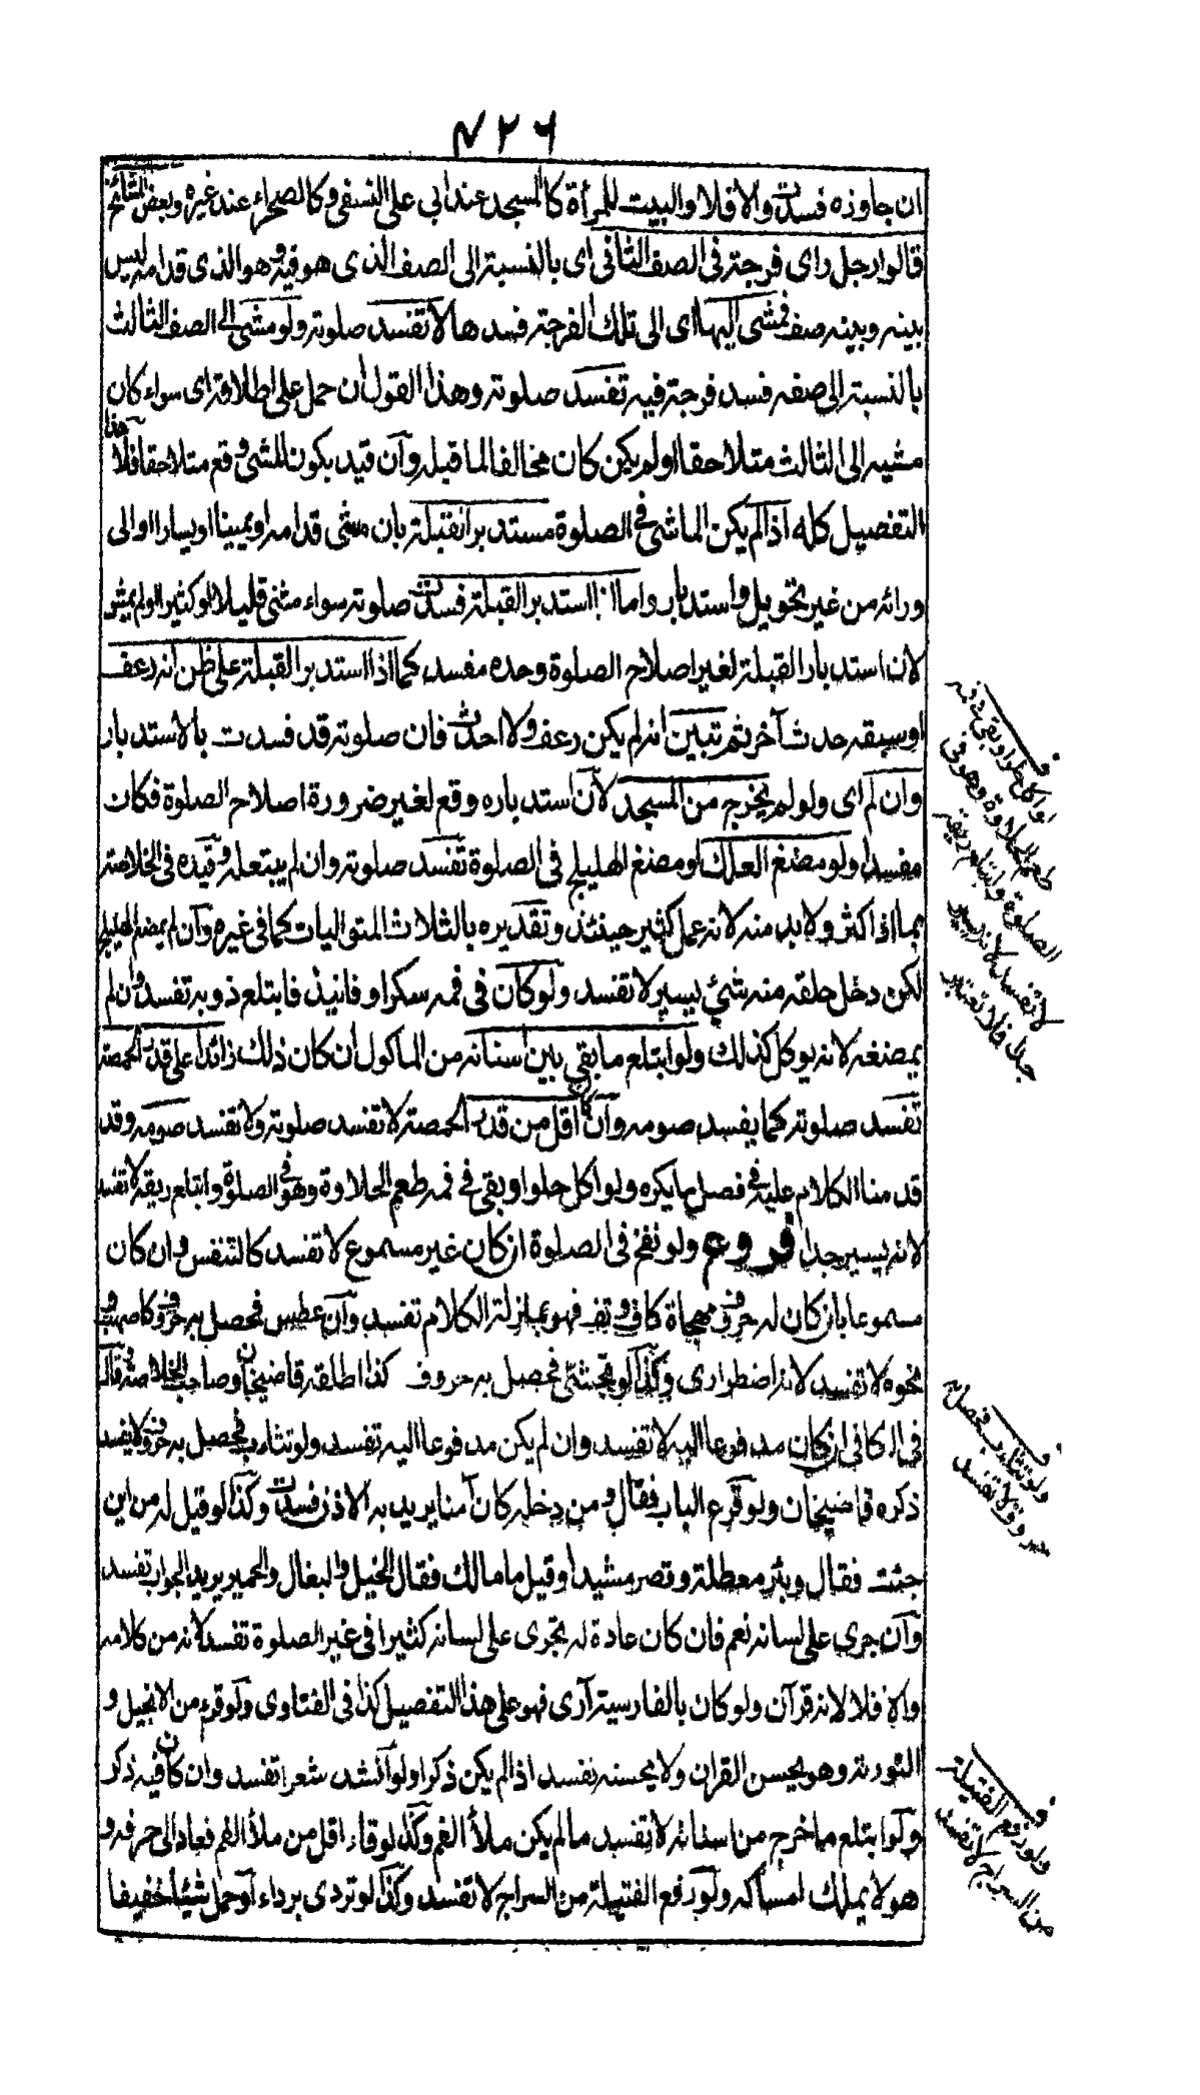 ٤٢٦
ان جاوزه فسدت والا فلا والبيت للمرأة كالمسجد عند ابى على النسفى وكالصحراء عند غيره وبعض المشائخ
قالوا رجل راى فرجة فى الصف الثانى اى بالنسبة الى الصف الذى هو فيه وهو الذى قدامه ليس
بينه وبينه صف فمشى اليها اى الى تلك الفرجة فسدها لا تفسد صلوته ولو مشى الى الصف الثالث
بالنسبة الى صفه فسد فرجة فيه تفسد صلوته وهذا القول ان حمل على اطلاقه اى سواء كان
مشيه الى الثالث متلاحقا اولم يكن كان مخالفا لما قبله وان قيد بكون المشى وقع متلاحقا فلا هذا
التفصيل كله اذا لم يكن الماشى فى الصلوة مستدبر القبلة بان مشى قدامه او يمينا او يسارا او الى
ورائه من غير تحويل واستدبار واما اذا استدبر القبلة فسدت صلوته سواء مشى قليلا او كثيرا اولم يمش
لان استدبار القبلة لغير اصلاح الصلوة وحده مفسد كما اذا استدبر القبلة على ظن انه رعف
او سبقه حدث آخر ثم تبين انه لم يكن رعف ولا احدث فان صلوته قد فسدت بالاستدبار
وان لم اى ولو لم يخرج من المسجد لان استدباره وقع لغير ضرورة اصلاح الصلوة فكان
مفسدا ولو مضغ العلك او مضغ الهليلج فى الصلوة تفسد صلوته وان لم يبتلعه وقيده فى الخلاصة
بما اذا كثر ولا بد منه لانه عمل كثير حينئذ وتقديره بالثلاث المتواليات كما فى غيره وان لم يمضغ الهليلج
لكن دخل حلقه منه شئ يسير لا تفسد ولو كان فى فمه سكر او فانيذ فابتلع ذوبه تفسد وان لم
يمضغه لانه يوكل كذالك ولو ابتلع ما بقى بين اسنانه من الماكول ان كان ذلك زائدا على قدر الحمصة
تفسد صلوته كما يفسد صومه وان كان اقل من قدر الحمصة لا تفسد صلوته ولا تفسد صومه وقد
قدمنا الكلام عليه فى فصل ما يكره ولو اكل حلوا وبقى فى فمه طعم الحلاوة وهو فى الصلوة وابتلع ريقه لا تفسد
لانه يسير جدا فروع ولو نفخ فى الصلوة ان كان غير مسموع لا تفسد كالتنفس وان كان
مسموعا بان كان له حروف مهجاة كاف وتف فهو بمنزلة الكلام تفسد وان عطس فحصل به حروف كاصهب و
نحوه لا تفسد لانه اضطرارى وكذا لو تجشى فحصل به حروف كذا اطلقه قاضيخان وصاحب الخلاصة وقال
فى الكافى ان كان مدفوعا اليه لا تفسد وان لم يكن مدفوعا اليه تفسد ولو تثاءب فحصل به حروف لا تفسد
ذكره قاضيخان ولو قرع الباب فقال ومن دخله كان آمنا يريد به الاذن فسدت وكذا لو قيل له من اين
جئت فقال وبئر معطلة وقصر مشيد او قيل ما مالك فقال الخيل والبغال والحمير يريد الجواب تفسد
وان جرى على لسانه نعم فان كان عادة له يجرى على لسانه كثيرا فى غير الصلوة تفسد لانه من كلامه
والا فلا لانه قرآن ولو كان بالفارسية آرى فهو على هذا التفصيل كذا فى الفتاوى ولو قرء من الانجيل و
التورٰىة وهو يحسن القران ولا يحسنه تفسد اذا لم يكن ذكرا ولو انشد شعرا تفسد وان كان فيه ذكر
ولو ابتلع ما خرج من اسنانه لا تفسد ما لم يكن ملأ الفم وكذا لو قاء اقل من ملأ الفم فعاد الى جوفه و
هو لا يملك امساكه ولو رفع الفتيلة من السراج لا تفسد وكذا لو تردى برداء او حمل شيئا خفيفا
لو اكل حلوا وبقى فى فمه
طعم الحلاوة وهو فى
الصلوة وابتلع ريقه
لا تفسد لانه يسير
جدا فلا تعتبر
ولو تثاءب فحصل به
حروف لا تفسد
ولو رفع الفتيلة
من السراج لا تفسد